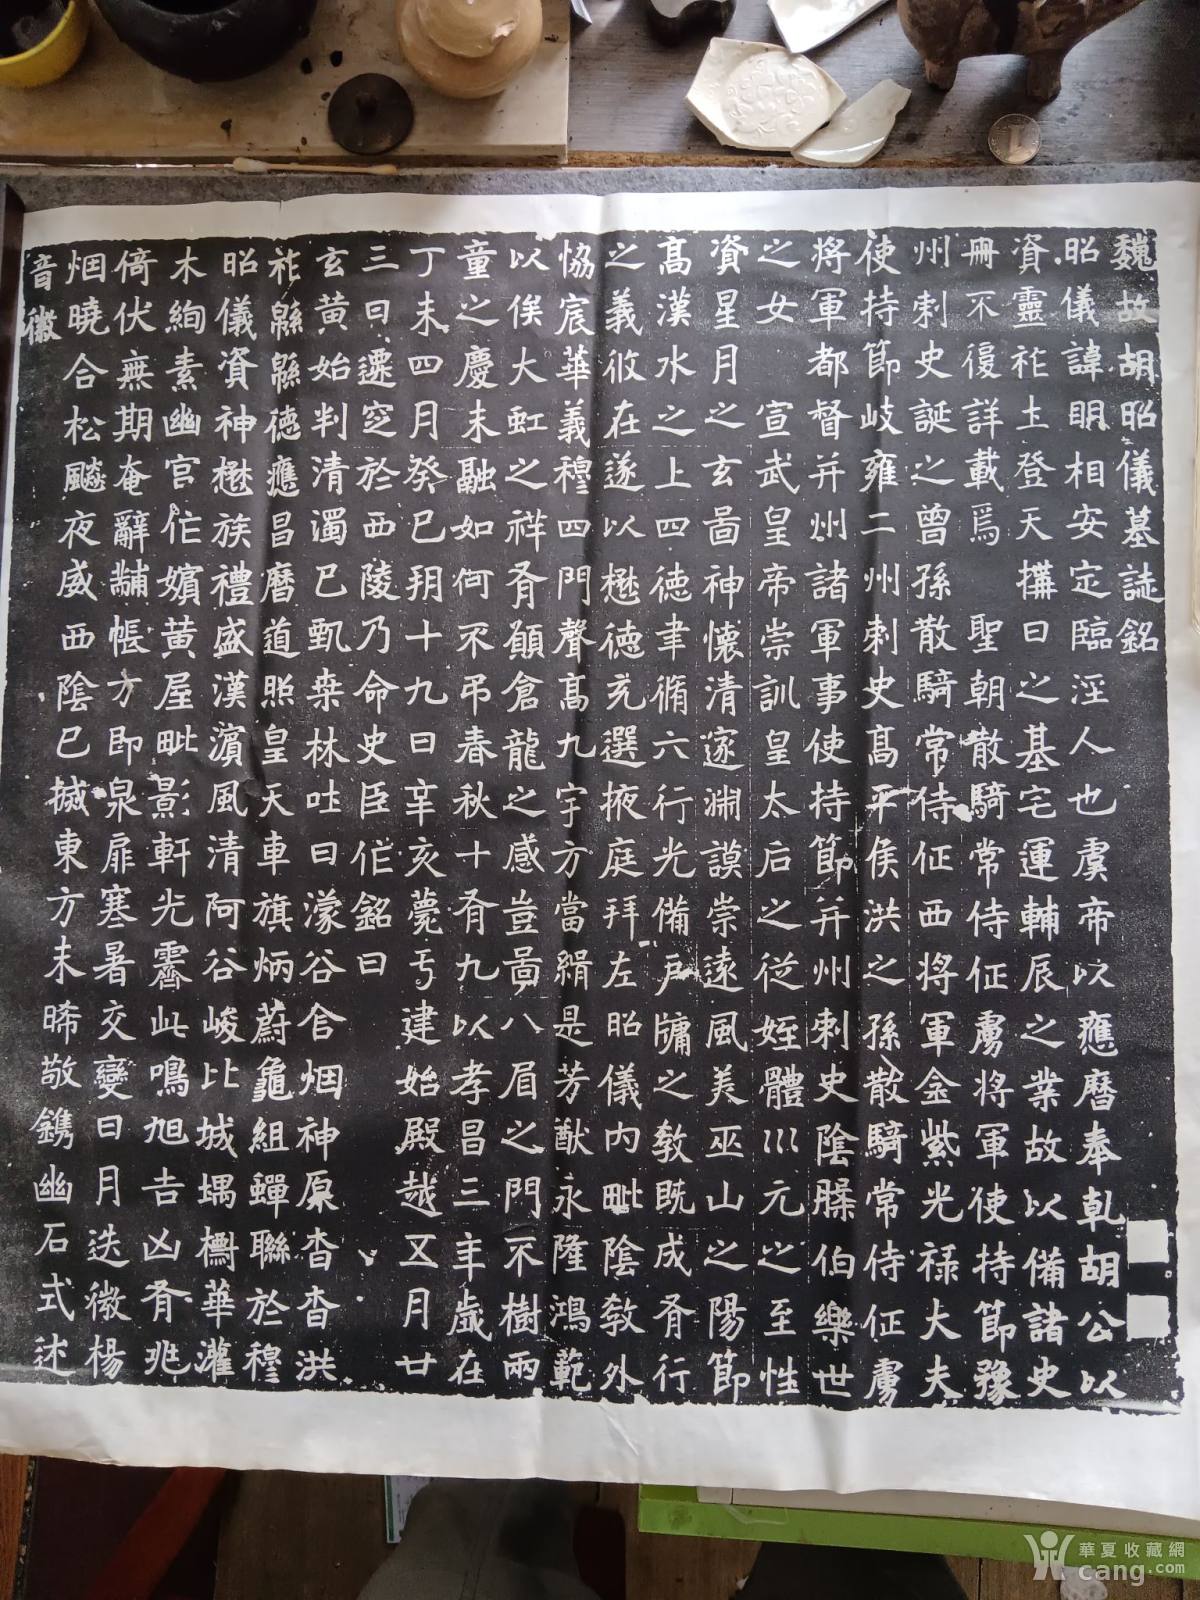 魏故胡昭儀墓誌銘
昭儀諱明相安定臨涇人也虞帝以應曆奉乾胡公以
資靈祚土登天構日之基宅運輔辰之業故以備諸史
冊不復詳載焉　聖朝散騎常侍征虜將軍使持節豫
州刺史誕之曾孫散騎常侍征西將軍金紫光祿大夫
使持節岐雍二州刺史高平侯洪之孫散騎常侍征虜
將軍都督并州諸軍事使持節并州刺史陰槃伯樂世
之女　宣武皇帝崇訓皇太后之從姪體川元之至性
資星月之玄啚神懷清邃淵謨崇遠風美巫山之陽節
高漢水之上四德聿脩六行光備戶牖之敎既成有行
之義攸在遂以懋德充選掖庭拜左昭儀內毗陰敎外
協宸華義穆四門聲高九宇方當緝是芳猷永隆鴻範
以俟大虹之祥有願倉龍之感豈啚八眉之門不樹兩
童之慶未融如何不弔春秋十有九以孝昌三年歲在
丁未四月癸巳朔十九日辛亥薨于建始殿越五月廿
三日遷窆於西陵乃命史臣作銘曰
玄黃始判清濁已甄桒林吐日濛谷含烟神㡳杳杳洪
祚緜緜德應昌曆道照皇天車旗炳蔚龜組蟬聯於穆
昭儀資神懋族禮盛漢濱風清阿谷峻比城堣櫹華灌
木絢素幽宮作嬪黃屋毗影軒光霽此鳴旭吉凶有兆
倚伏無期奄辭黼帳方即泉扉寒暑交變日月迭微楊
烟曉合松飈夜威西陰已搣東方未晞敬鐫幽石式述
音徽
華夏收藏網
cang.com